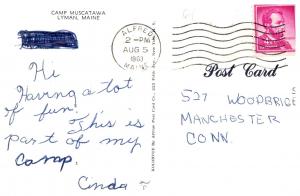 CAMP MUSCATAWA
LYMAN, MAINE
ALFRED
2 - PM
AUG 5
MAINE
Post Card
Hi
Having a lot
of fun. This is
part of my
camp.
Cinda
527 WOODBRIDGE
MANCHESTER
CONN.